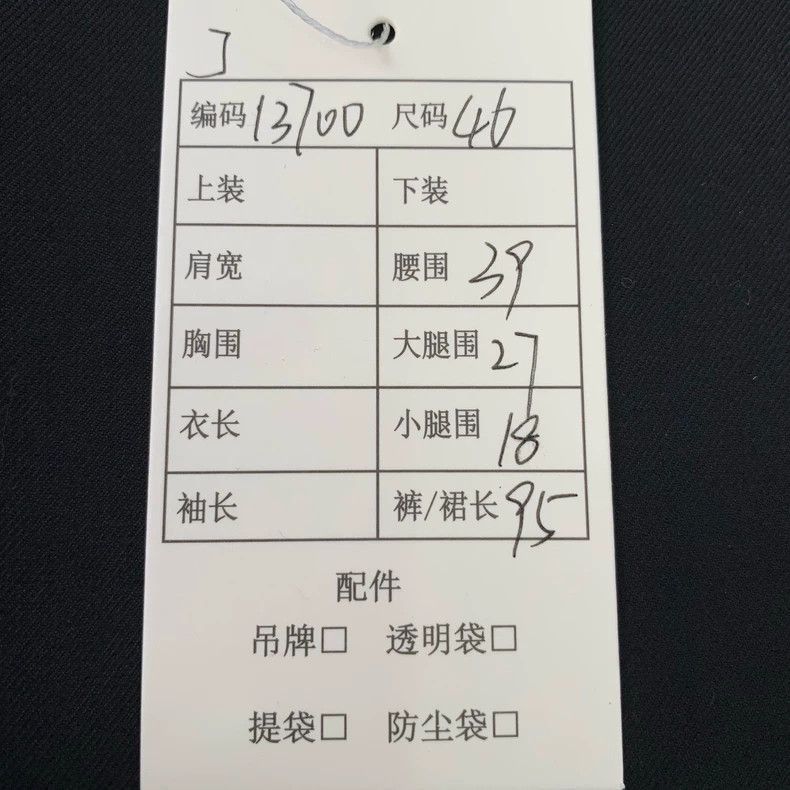 编码 13700 尺码 46
上装 下装
肩宽 腰围 39
胸围 大腿围 27
衣长 小腿围 18
袖长 裤/裙长 95
配件
吊牌□ 透明袋□
提袋□ 防尘袋□